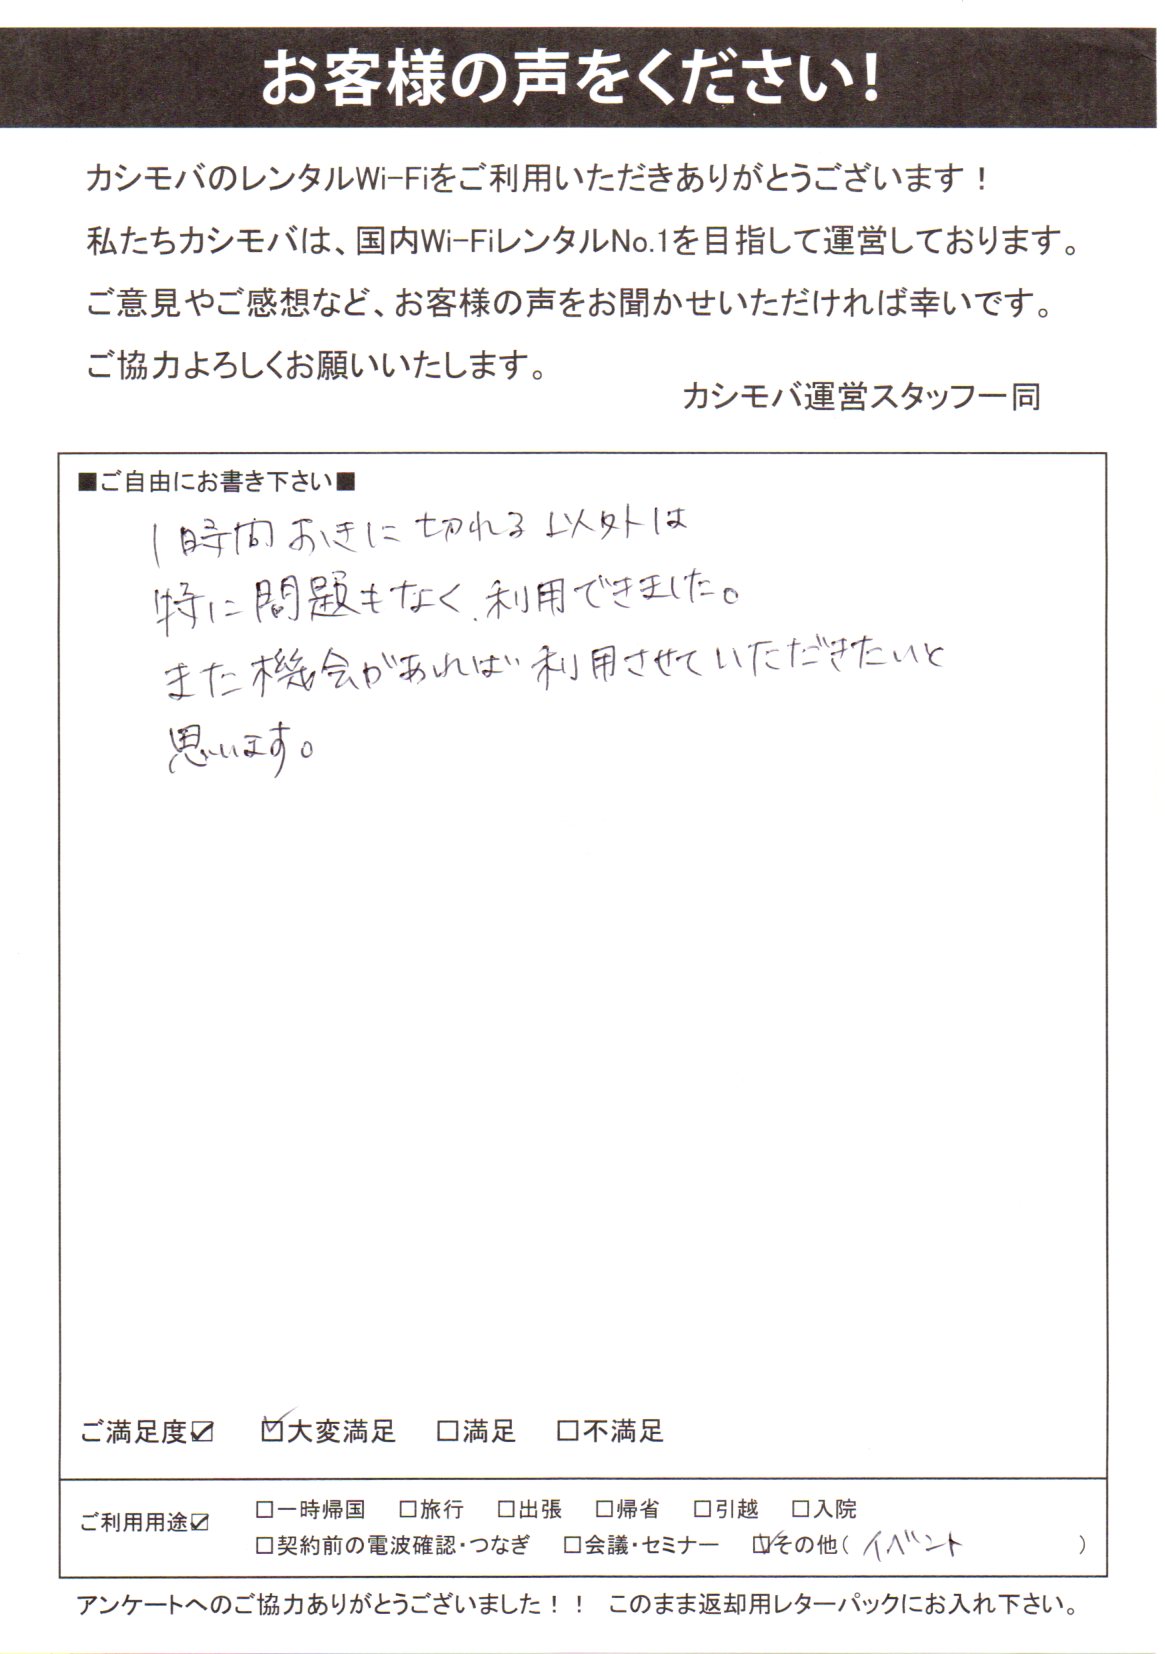 お客様の声をください!
カシモバのレンタルWi-Fiをご利用いただきありがとうございます！
私たちカシモバは、国内Wi-FiレンタルNo.1を目指して運営しております。
ご意見やご感想など、お客様の声をお聞かせいただければ幸いです。
ご協力よろしくお願いいたします。
カシモバ運営スタッフ一同
■ご自由にお書き下さい■
1時間おきに切れる以外は
特に問題もなく、利用できました。
また機会があれば利用させていただきたいと
思います。
ご満足度☑ ☑大変満足 □満足 □不満足
ご利用用途☑ □一時帰国 □旅行 □出張 □帰省 □引越 □入院
□契約前の電波確認・つなぎ □会議・セミナー ☑その他( イベント )
アンケートへのご協力ありがとうございました！！ このまま返却用レターパックにお入れ下さい。